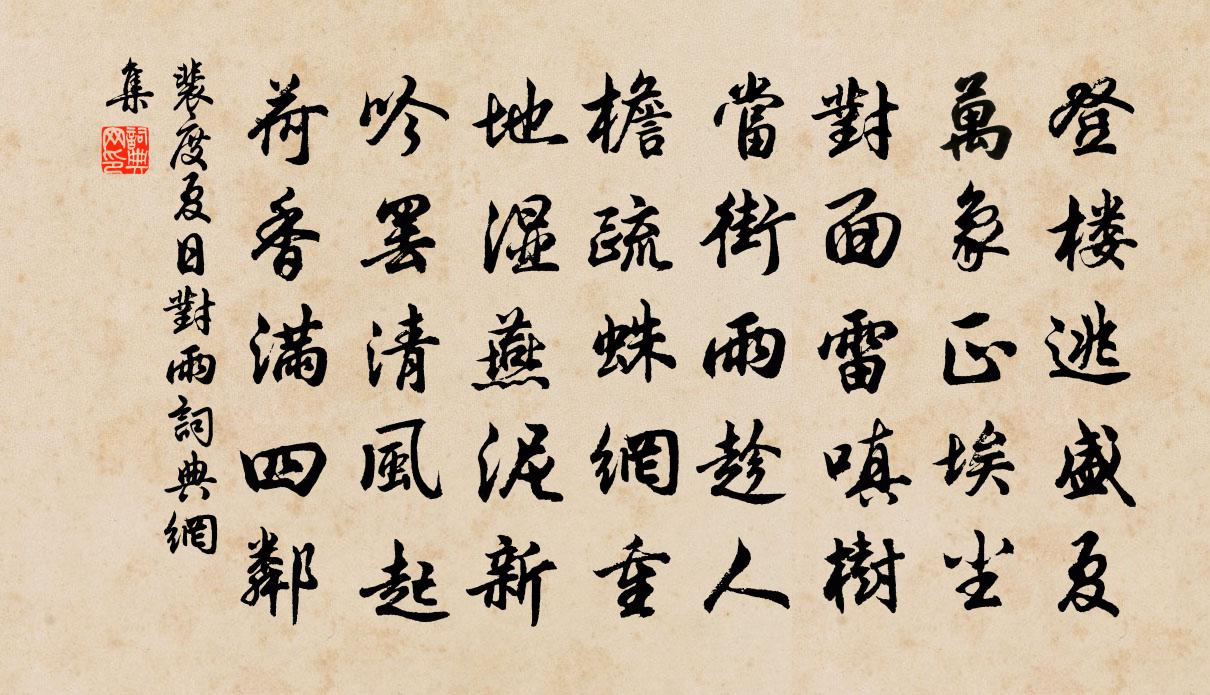 登楼逃盛夏
萬象正埃尘
對面雷嗔樹
當街雨趁人
檐疏蛛網重
地湿燕泥新
吟罢清風起
荷香满四鄰
裴度夏日對雨詞典網
集
詞典网印